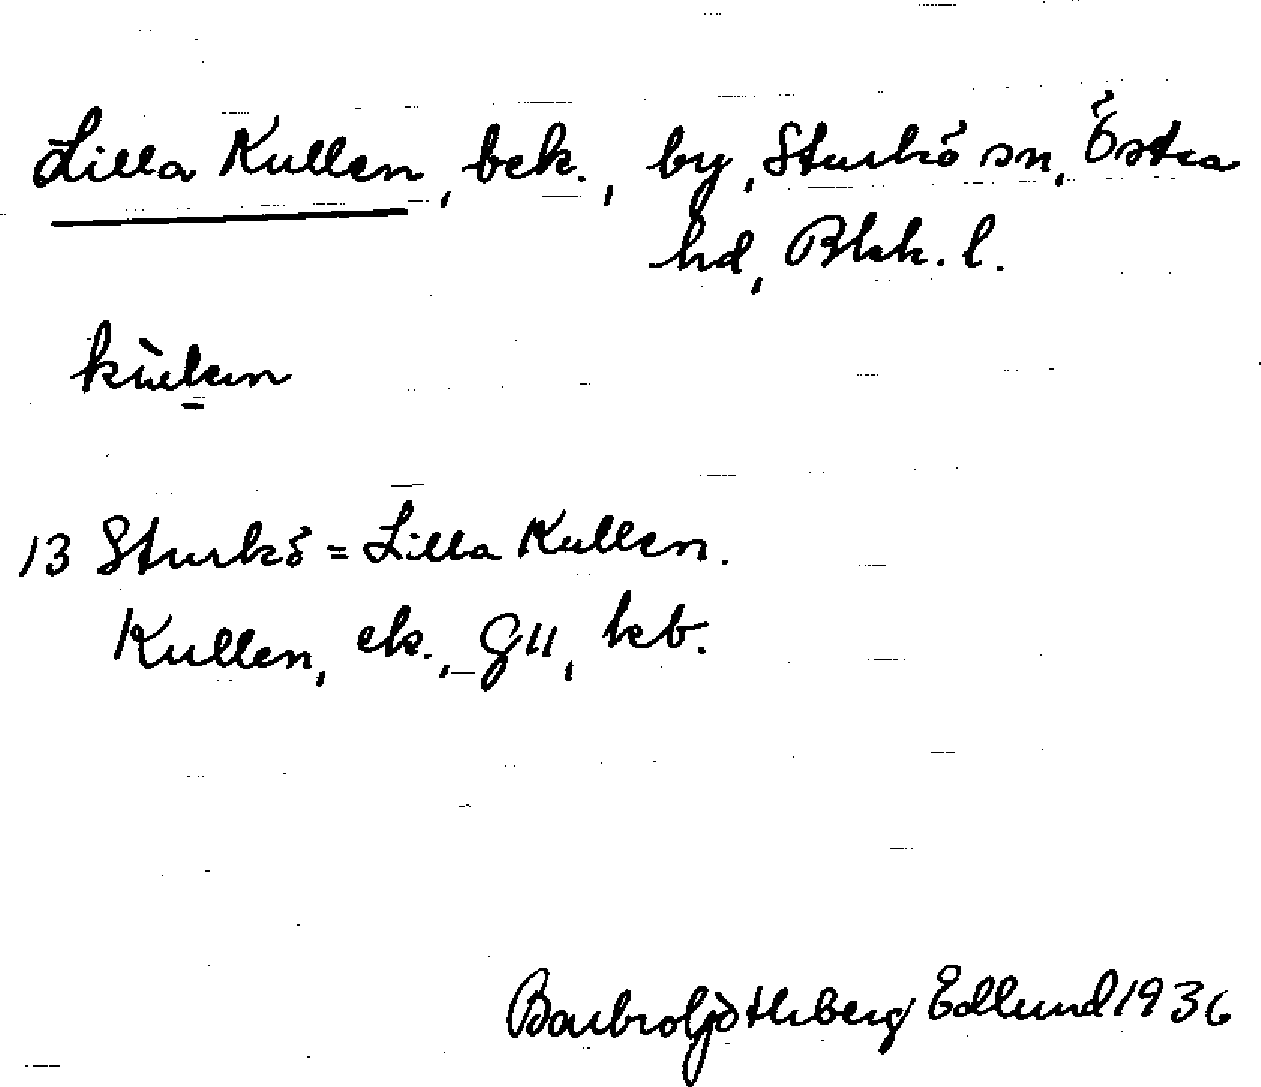 Lilla Kullen, bek., by, Sturkö sn, Östra
hd, Blek. l.
13 Sturkö = Lilla Kullen.
Kullen, ek., G11, kb.
Barbro Götherberg Edlund 1936